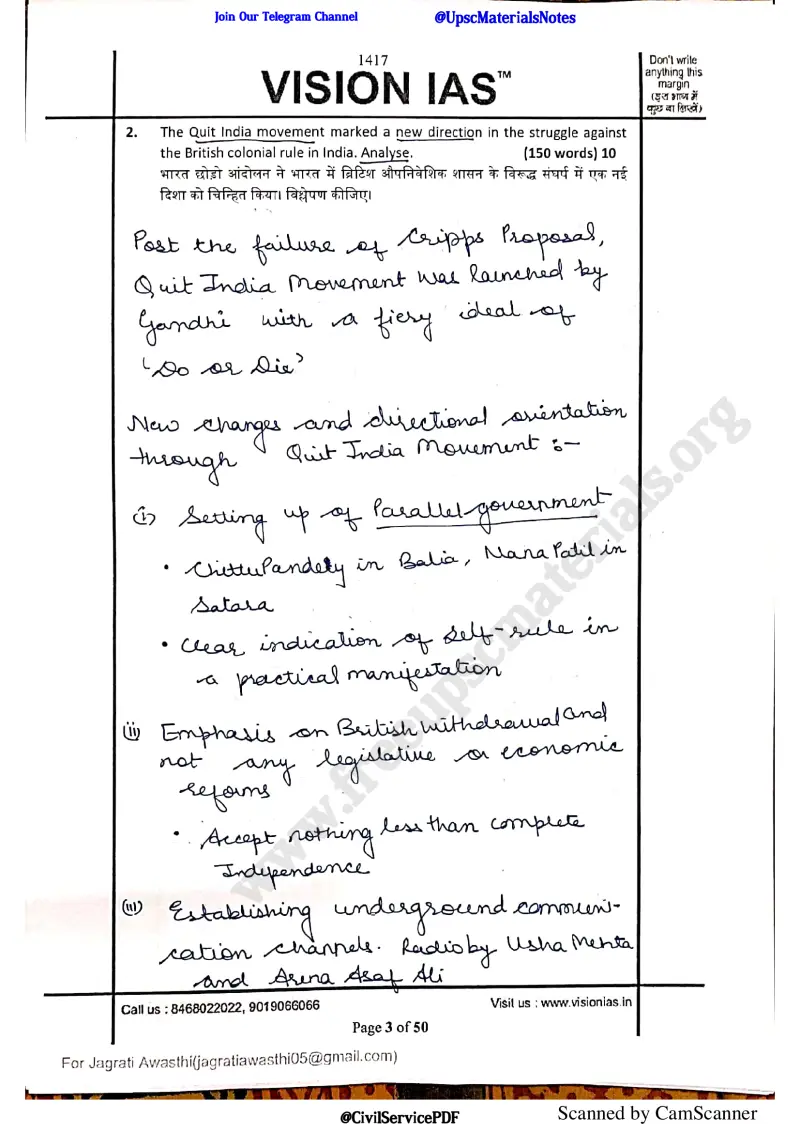 Join Our Telegram Channel @UpscMaterialsNotes
1417
VISION IAS™
Don't write
anything this
margin
(इस भाग में
कुछ ना लिखें)
2. The Quit India movement marked a new direction in the struggle against
the British colonial rule in India. Analyse. (150 words) 10
भारत छोड़ो आंदोलन ने भारत में ब्रिटिश औपनिवेशिक शासन के विरूद्ध संघर्ष में एक नई
दिशा को चिन्हित किया। विश्लेषण कीजिए।
Post the failure of Cripps Proposal,
Quit India Movement was launched by
Gandhi with a fiery ideal of
'Do or Die'
New changes and directional orientation
through Quit India Movement :-
(i) Setting up of Parallel government
• Chittu Pandey in Balia, Nana Patil in
Satara
• Clear indication of self-rule in
a practical manifestation
(ii) Emphasis on British withdrawal and
not any legislative or economic
reforms
• Accept nothing less than complete
Independence
(iii) Establishing underground communi-
cation channels. Radio by Usha Mehta
and Aruna Asaf Ali
www.freeupscmaterials.org
Call us : 8468022022, 9019066066 Visit us : www.visionias.in
Page 3 of 50
For Jagrati Awasthi(jagratiawasthi05@gmail.com)
@CivilServicePDF Scanned by CamScanner